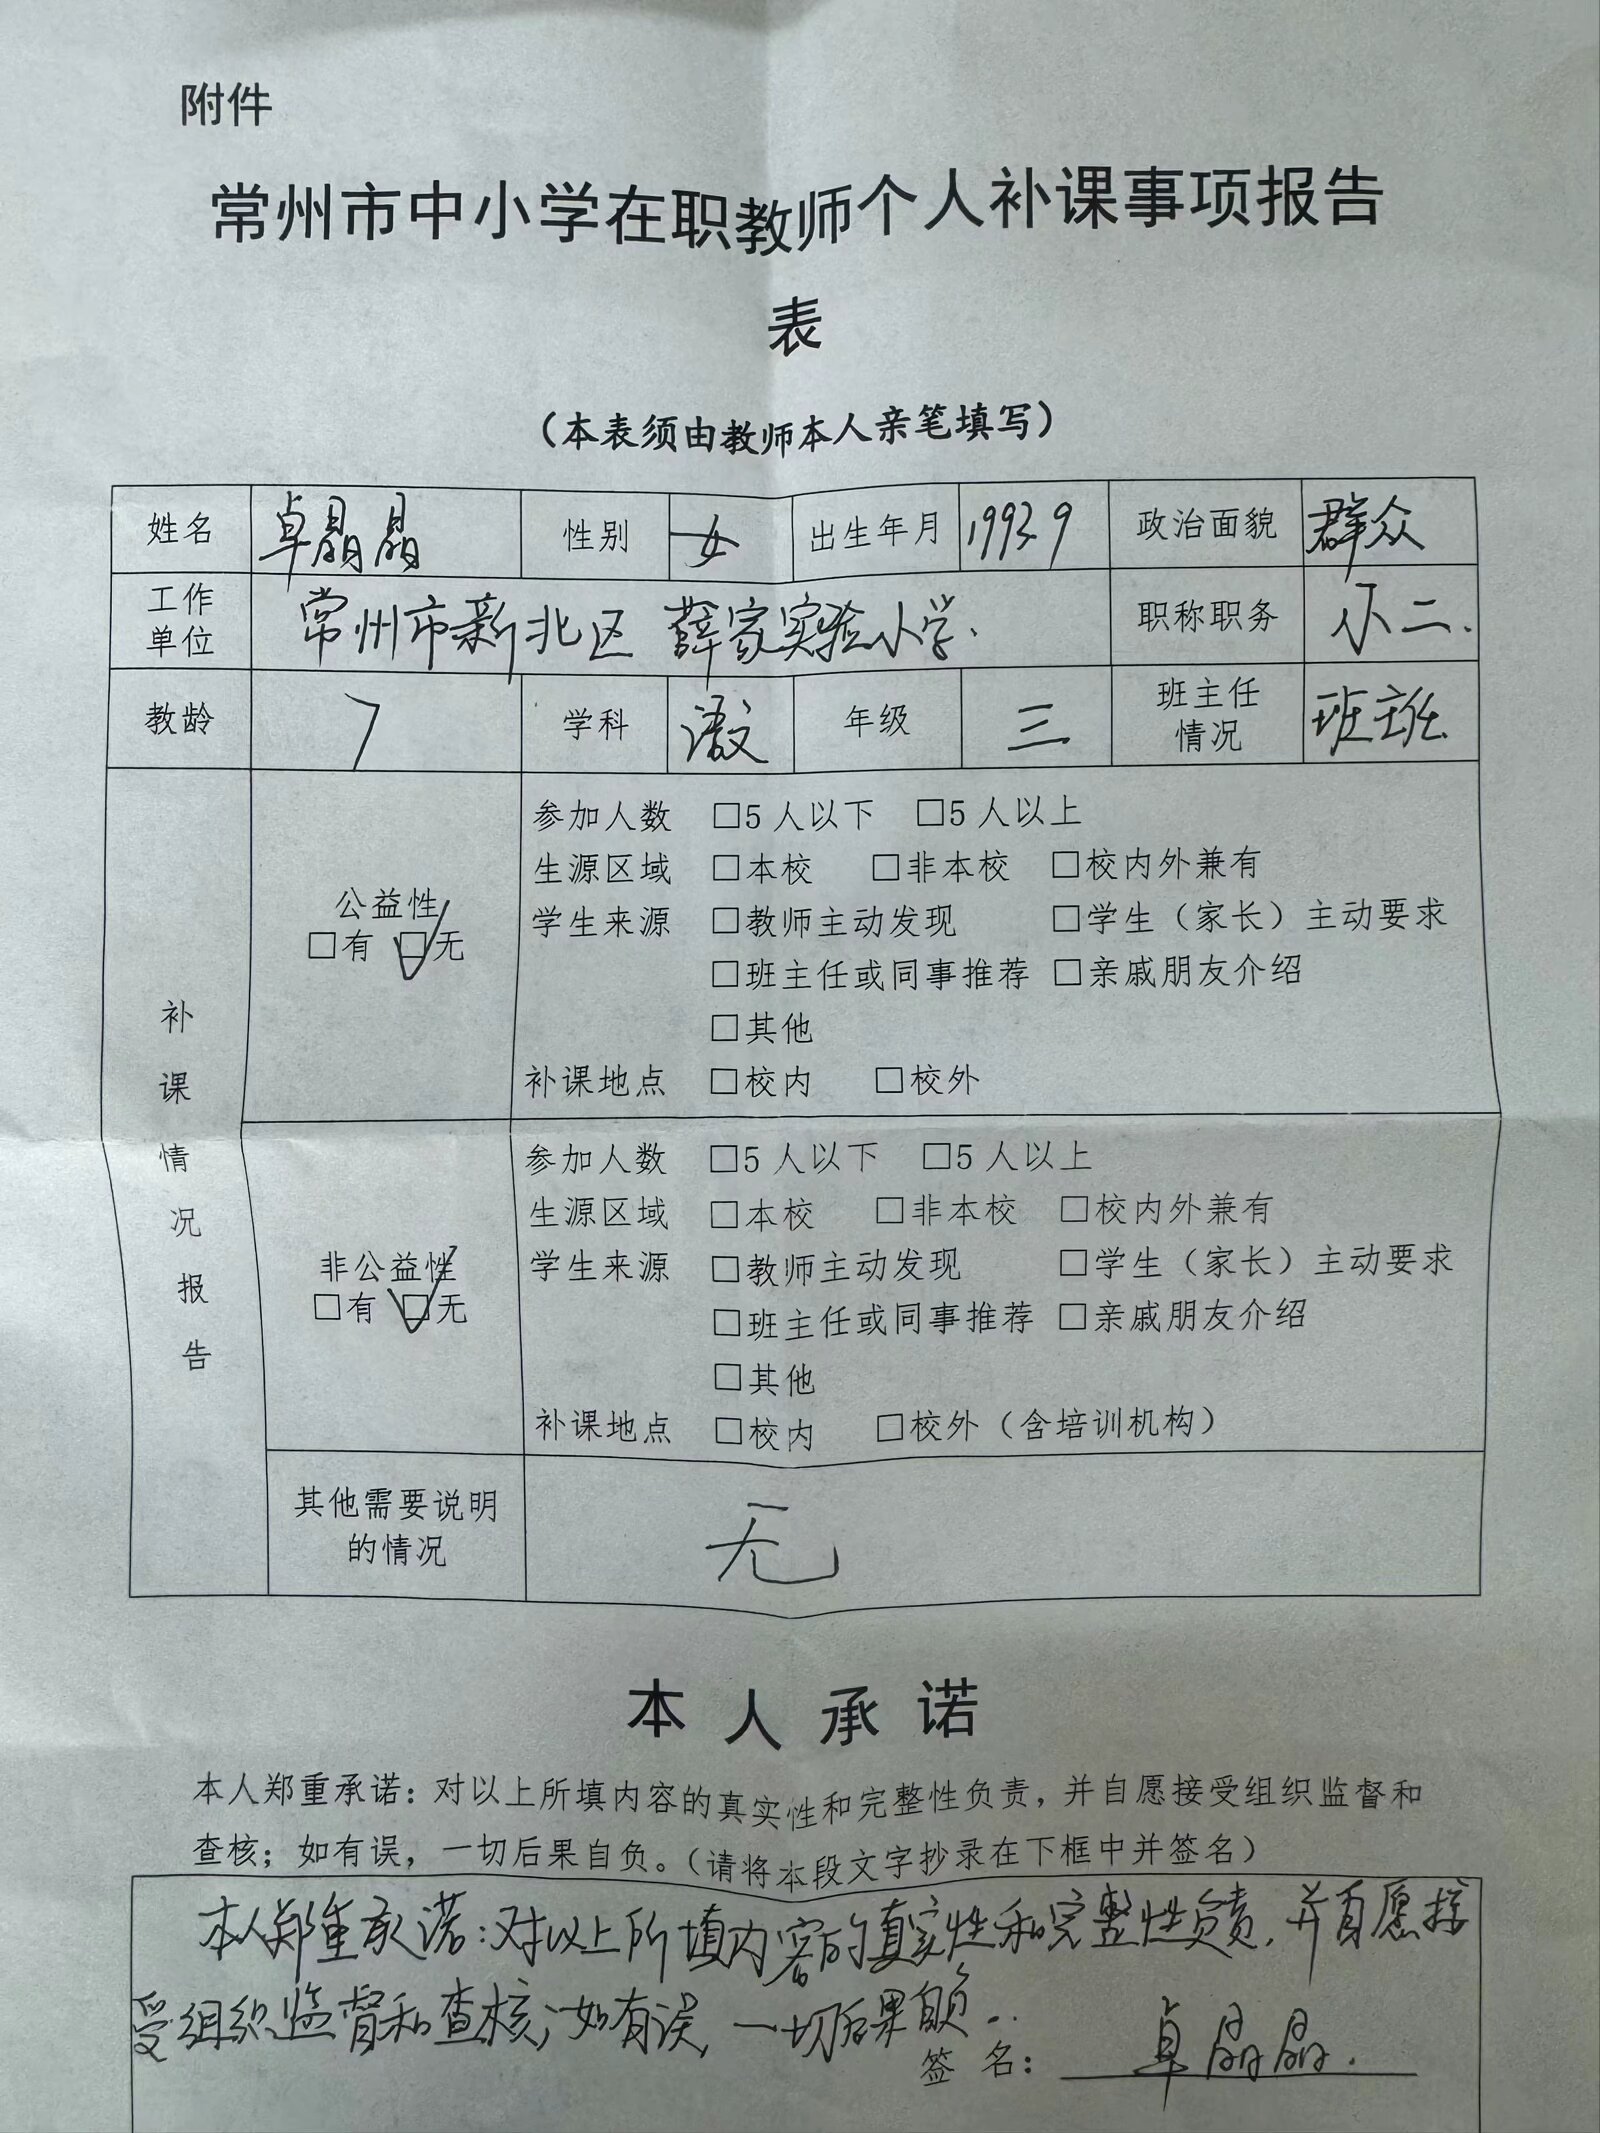 附件
常州市中小学在职教师个人补课事项报告
表
（本表须由教师本人亲笔填写）
姓名 卓晶晶 性别 女 出生年月 1993.9 政治面貌 群众
工作单位 常州市新北区薛家实验小学. 职称职务 小二.
教龄 7 学科 语文 年级 三 班主任情况 班主任
补课情况报告
公益性
□有 ☑无
参加人数 □5人以下 □5人以上
生源区域 □本校 □非本校 □校内外兼有
学生来源 □教师主动发现 □学生（家长）主动要求
□班主任或同事推荐 □亲戚朋友介绍
□其他
补课地点 □校内 □校外
非公益性
□有 ☑无
参加人数 □5人以下 □5人以上
生源区域 □本校 □非本校 □校内外兼有
学生来源 □教师主动发现 □学生（家长）主动要求
□班主任或同事推荐 □亲戚朋友介绍
□其他
补课地点 □校内 □校外（含培训机构）
其他需要说明
的情况
无
本人承诺
本人郑重承诺：对以上所填内容的真实性和完整性负责，并自愿接受组织监督和
查核；如有误，一切后果自负。（请将本段文字抄录在下框中并签名）
本人郑重承诺：对以上所填内容的真实性和完整性负责，并自愿接
受组织监督和查核；如有误，一切后果自负。
签 名：卓晶晶.